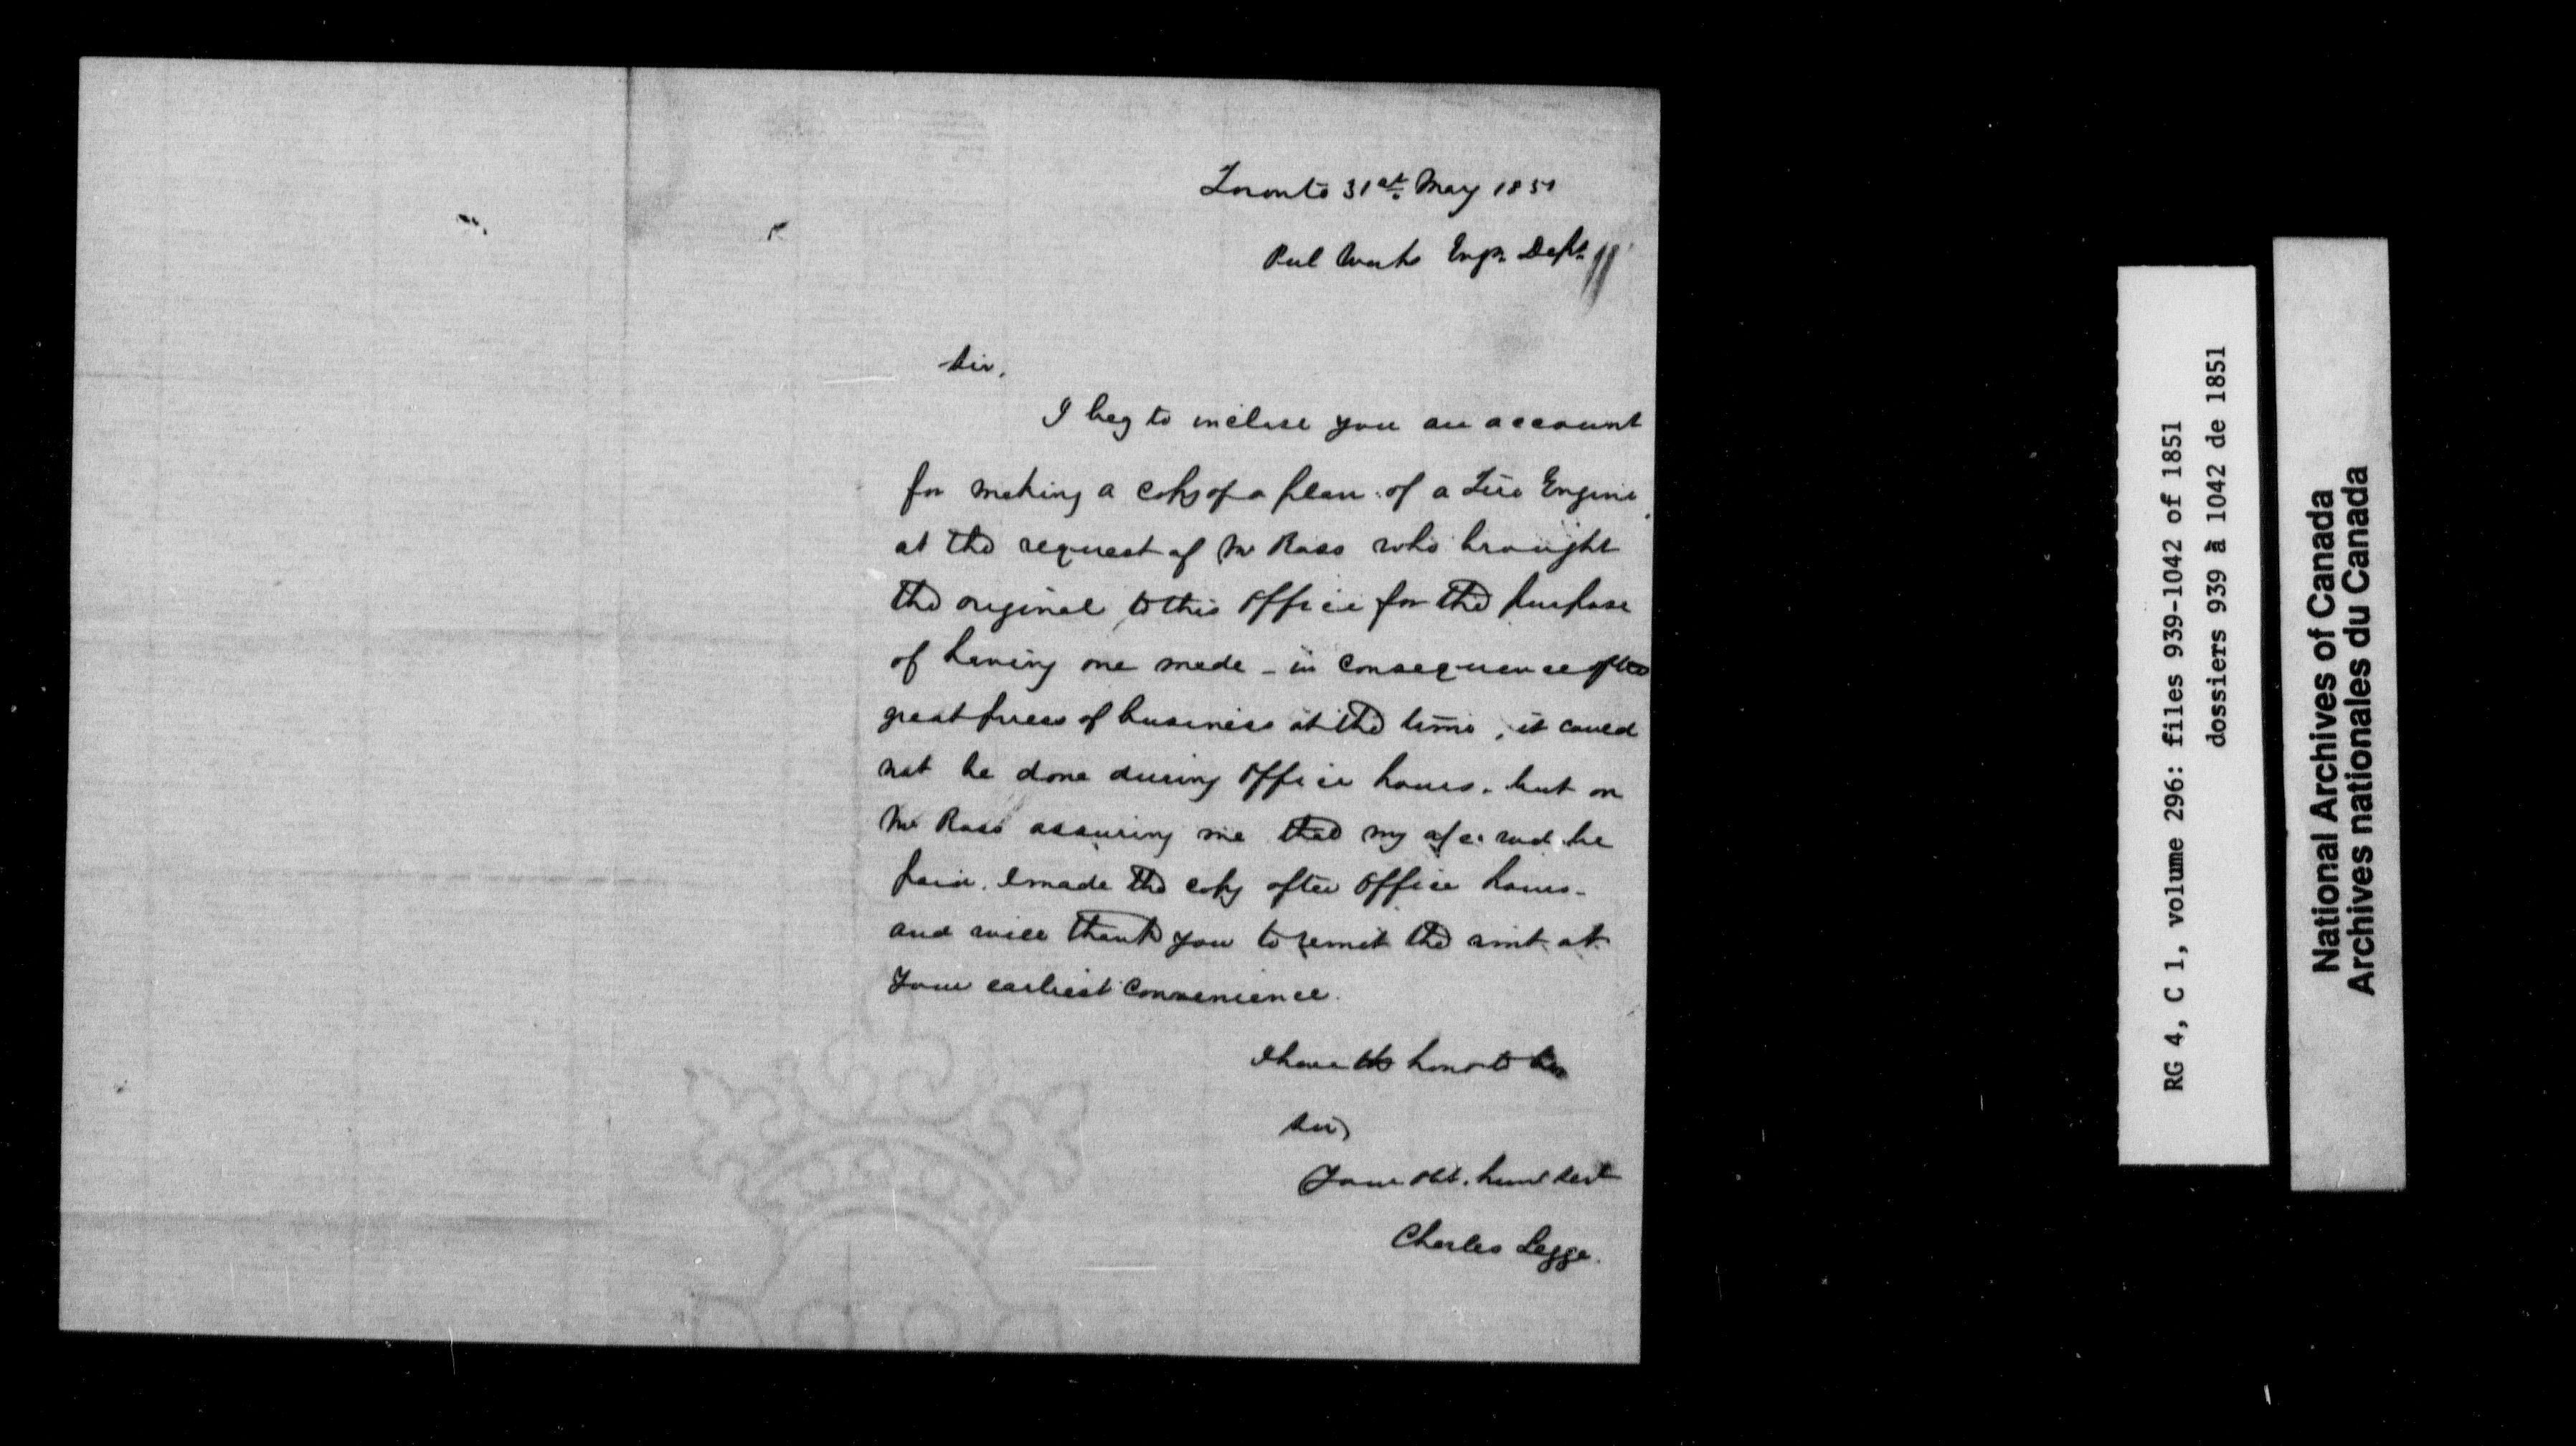 Toronto 31st May 1851
Pub Works Engr. Dept.
Sir,
I beg to inclose you an account
for making a copy of a plan of a Fire Engine
at the request of Mr Ross who brought
the original to this Office for the purpose
of having one made - in consequence of the
great press of business at the time, it could
not be done during Office hours. but on
Mr Ross assuring me that my a/c. wd be
paid. I made the copy after Office hours -
and will thank you to remit the amt at
your earliest Convenience.
I have the honor to be
Sir,
Your Obt. humb Servt
Charles Legge.
RG 4, C 1, volume 296: files 939-1042 of 1851
dossiers 939 à 1042 de 1851
National Archives of Canada
Archives nationales du Canada